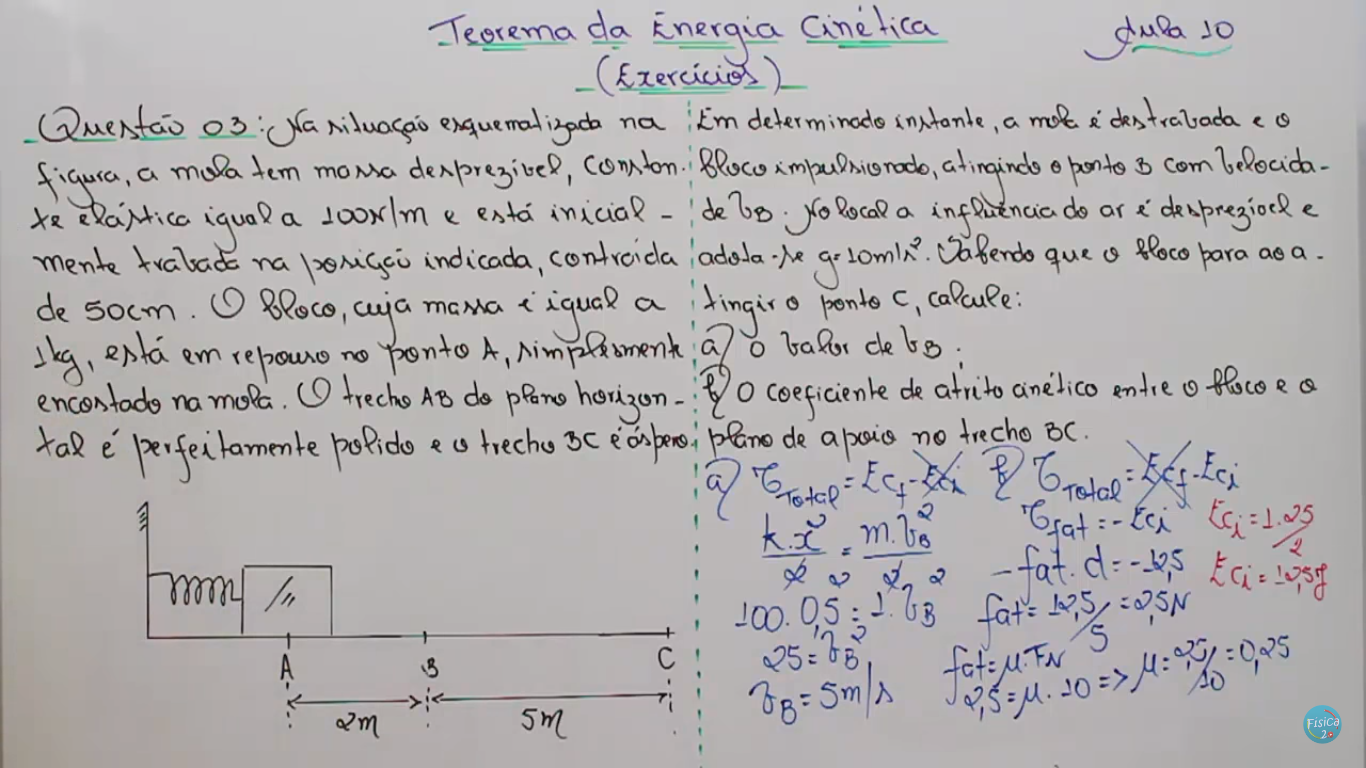 Teorema da Energia Cinética
Aula 10
(Exercícios)
Questão 03: Na situação esquematizada na
figura, a mola tem massa desprezível, constan-
te elástica igual a 100N/m e está inicial-
mente travada na posição indicada, contraída
de 50cm. O bloco, cuja massa é igual a
1kg, está em repouso no ponto A, simplesmente
encostado na mola. O trecho AB do plano horizon-
tal é perfeitamente polido e o trecho BC é áspero.
Em determinado instante, a mola é destravada e o
bloco impulsionado, atingindo o ponto B com velocida-
de VB. No local a influência do ar é desprezível e
adota-se g=10m/s². Sabendo que o bloco para ao a-
tingir o ponto C, calcule:
a) O valor de VB.
b) O coeficiente de atrito cinético entre o bloco e o
plano de apoio no trecho BC.
A
B
C
2m
5m
a) τTotal = Ecf - Eci
k.x²/2 = m.VB²/2
100.0,5² = 1.VB²
25 = VB²
VB = 5m/s
b) τTotal = Ecf - Eci
τfat = - Eci
- fat. d = -12,5
fat = 12,5/5 = 2,5N
fat = μ.FN
2,5 = μ.10 => μ = 2,5/10 = 0,25
Eci = 1.25/2
Eci = 12,5J
Física
2.